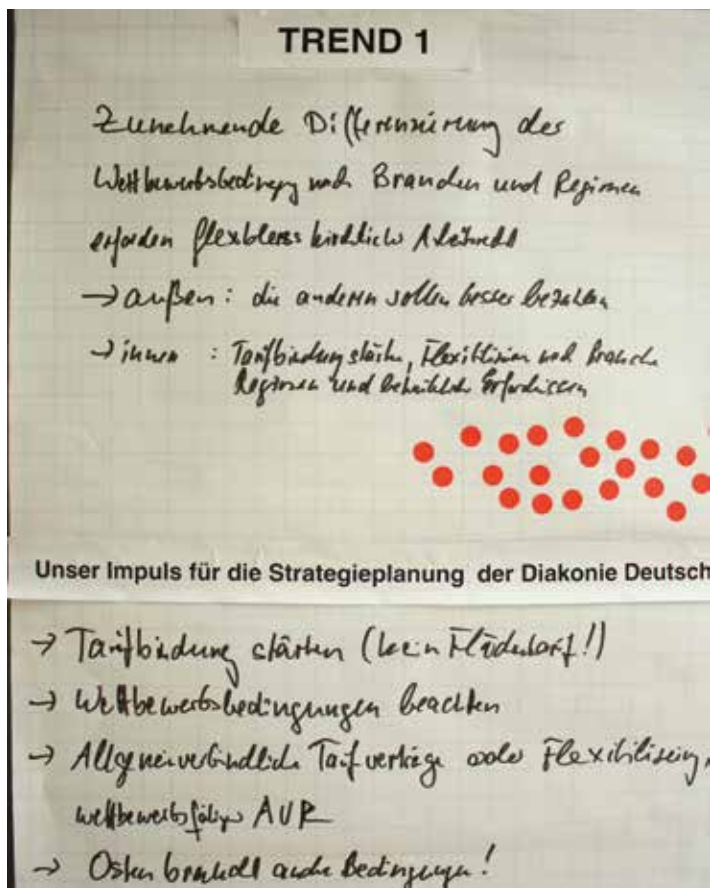 TREND 1
Zunehmende Differenzierung der
Wettbewerbsbedingg nach Branchen und Regionen
erfordern flexibleres kirchliches Arbeitsrecht
→ außen : die anderen sollen besser bezahlen
→ innen : Tarifbindung stärken, Flexibilisieren nach Branche
Regionen und betriebliche Erfordernissen
Unser Impuls für die Strategieplanung der Diakonie Deutsch
→ Tarifbindung stärken (kein Flächentarif!)
→ Wettbewerbsbedingungen beachten
→ Allgemeinverbindliche Tarifverträge oder Flexibilisierung
wettbewerbsfähiger AVR
→ Osten braucht andere Bedingungen!